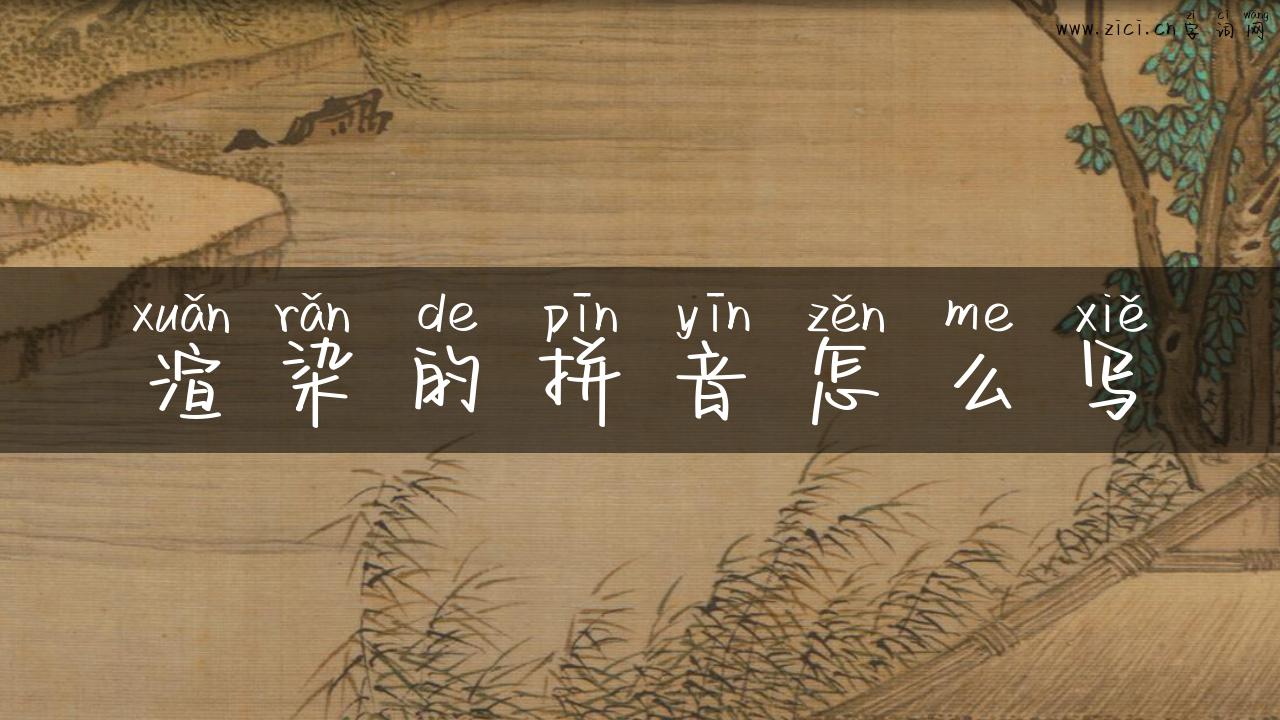 zì cí wǎng
www.zici.cn 字词网
xuǎn rǎn de pīn yīn zěn me xiě
渲染的拼音怎么写